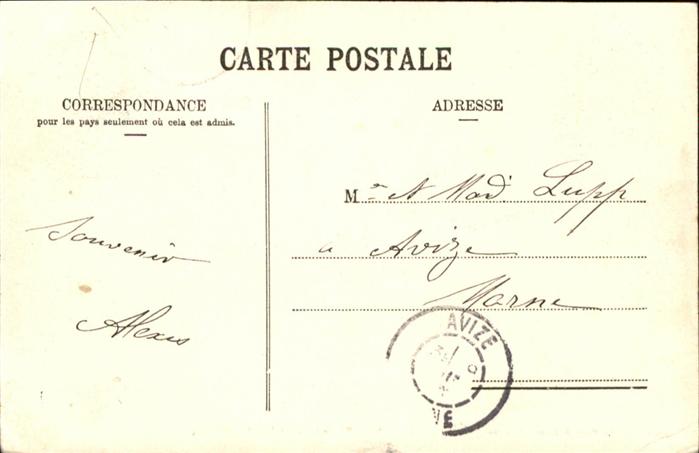 CARTE POSTALE
CORRESPONDANCE
pour les pays seulement où cela est admis.
Souvenir
Alexis
ADRESSE
M. et Mad. Lupp
a Avize
Marne
AVIZE